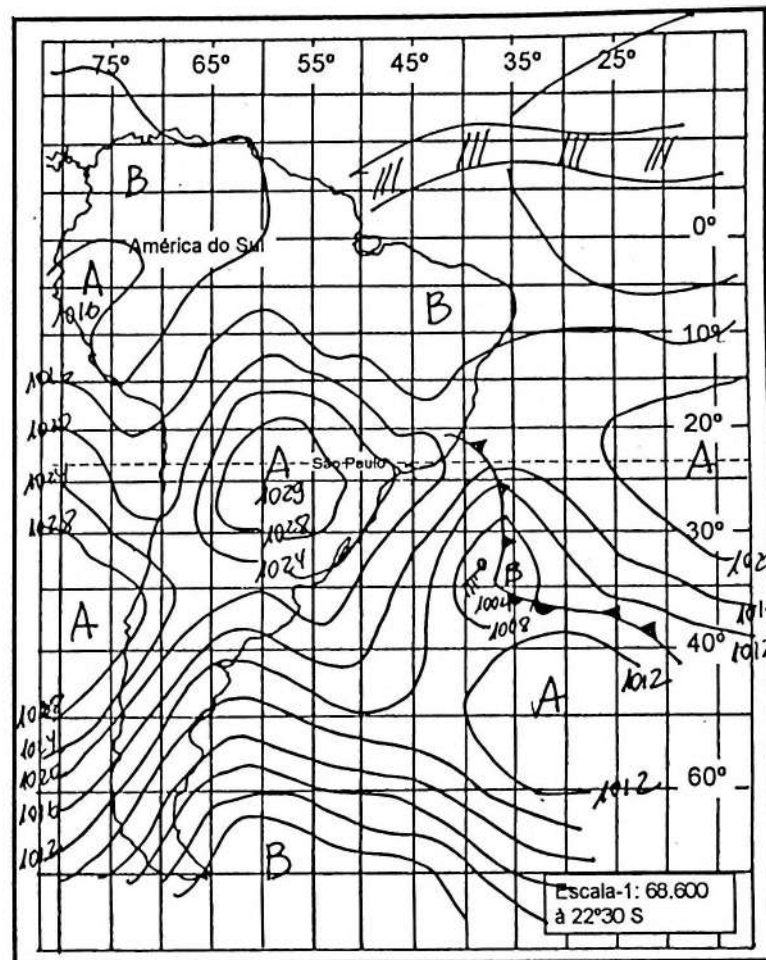 75° 65° 55° 45° 35° 25°
B
América do Sul 0°
A
1016
B
10º
1012
1020 20°
A São Paulo A
1024 1029
1028 1028 30°
1024
B
1004
1008
A 40°
1012
1012
A
1028
1024
1020
1012 60°
1016
1012
B
Escala-1: 68.600
à 22º30 S